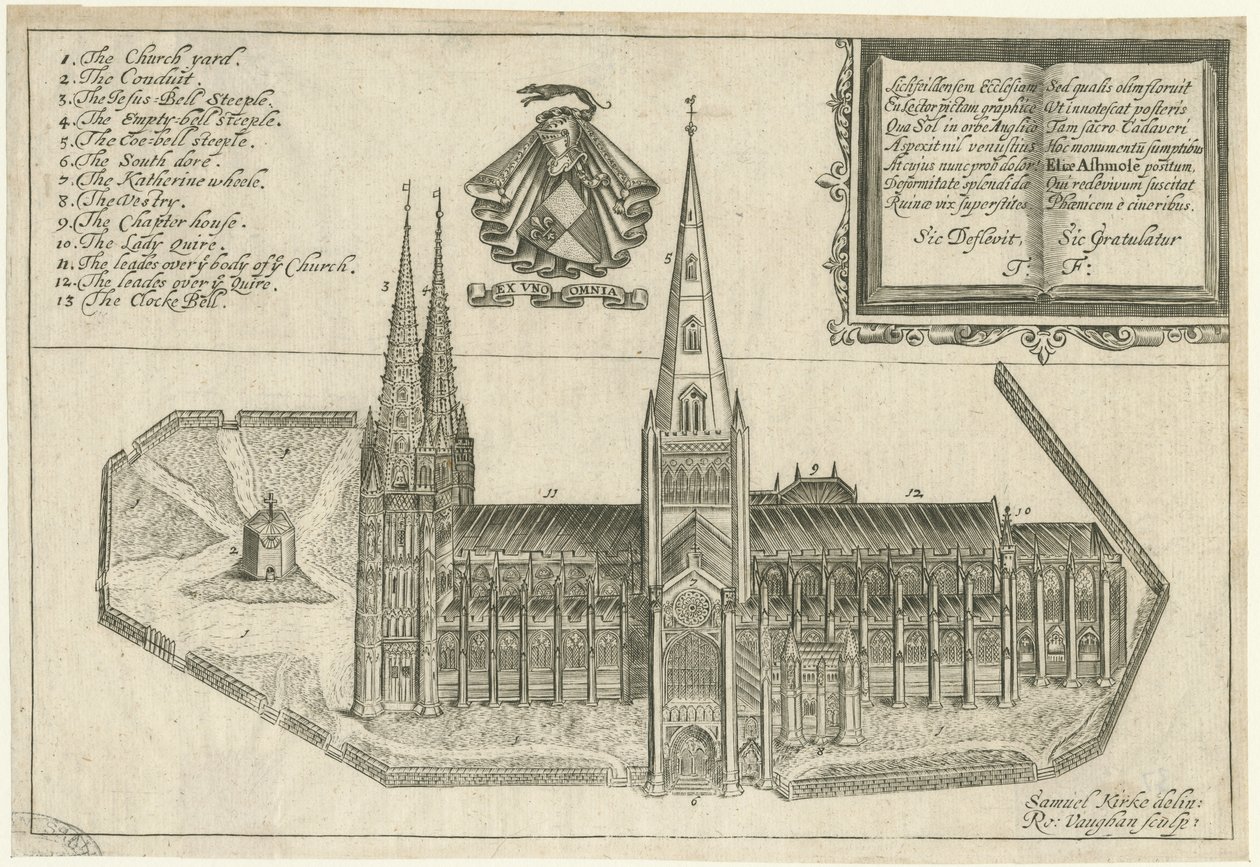 1. The Church yard.
2. The Conduit.
3. The Jesus-Bell Steeple.
4. The Empty-bell steeple.
5. The Coe-bell steeple.
6. The South dore.
7. The Katherine wheele.
8. The Vestry.
9. The Chapter house.
10. The Lady Quire.
11. The leades over yͤ body of yͤ Church.
12. The leades over yͤ Quire.
13 The Clocke Bell.
EX VNO OMNIA
Lichfeildensem Ecclesiam
En Lector pictam graphice
Qua Sol in orbe Anglico
Aspexit nil venustius
At cujus nunc proh dolor!
Deformitate splendidæ
Ruinæ vix superstites
Sic Deflevit,
T:
Sed qualis olim floruit
Vt innotescat posteris
Tam sacro Cadaveri
Hoc monumentū sumptibus
Eliæ Ashmole positum,
Qui redevivum suscitat
Phœnicem è cineribus.
Sic Gratulatur
F:
3
4
5
9
11
12
10
1
1
2
7
1
1
1
8
6
Samuel Kirke delin:
Ro: Vaughan sculp: